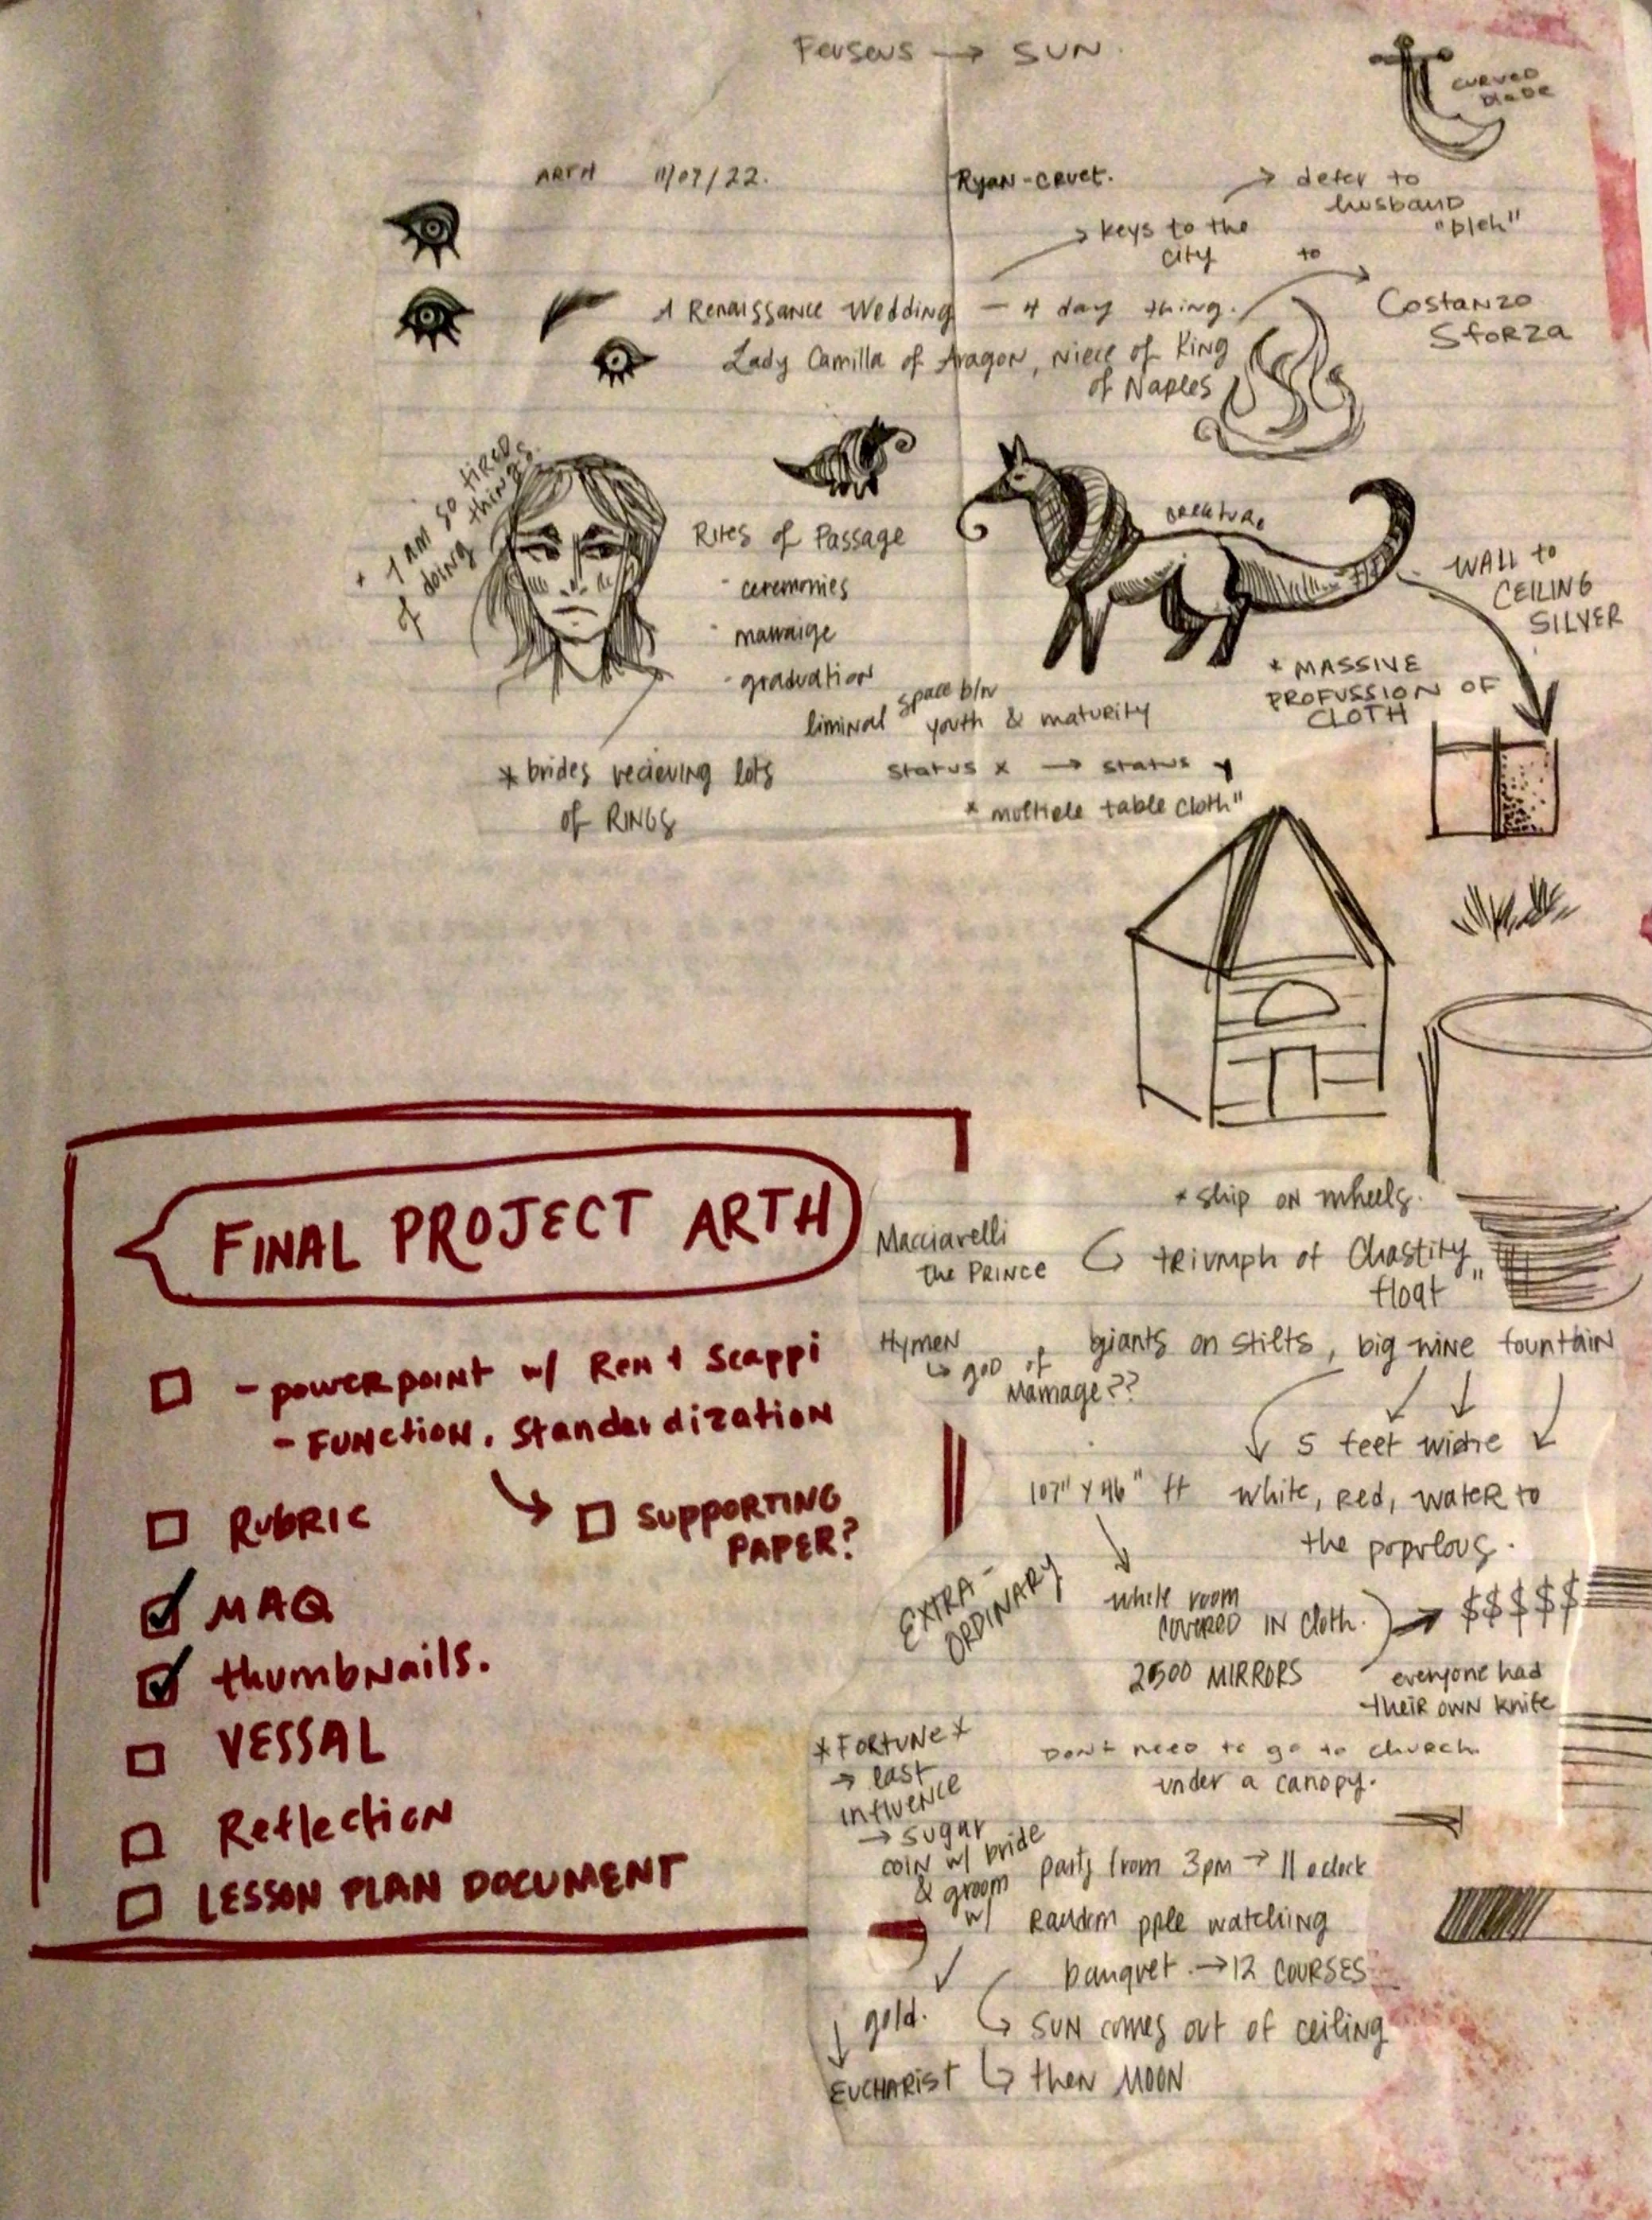 Perseus → SUN.
CURVED
BLADE
ARTH 11/07/22.
Ryan-Cruet.
→ defer to
husband
"bleh"
→ keys to the
city
to
A Renaissance Wedding — 4 day thing.
Costanzo
Sforza
Lady Camilla of Aragon, niece of King
of Naples
* I am so tired
of doing things.
creature
Rites of Passage
- ceremonies
- marraige
- graduation
liminal space b/n
youth & maturity
status x → status y
* multiple table cloth"
* brides recieving lots
of RINGS
WALL to
CEILING
SILVER
* MASSIVE
PROFUSSION OF
CLOTH
FINAL PROJECT ARTH
- powerpoint w/ Ren + Scappi
- FUNction, Standardization
Rubric
SUPPORTING
PAPER?
MAQ
thumbNails.
VESSAL
Reflection
LESSON PLAN DOCUMENT
* ship on wheels.
Macciavelli
the PRINCE
triumph of Chastity
float"
Hymen
↳ god of
Marriage??
giants on stilts, big wine fountain
5 feet wide
107" x 46" ft
white, red, water to
the populous.
EXTRA-
ORDINARY
whole room
COVERED IN cloth.
→ $$$$$
2500 MIRRORS
everyone had
their own knife
* FORTUNE *
→ last
influence
→ sugar
coin w/ bride
& groom
w/
gold.
EUCHARIST
Don't need to go to church.
under a canopy.
party from 3pm → 11 oclock
Random pple watching
banquet. → 12 COURSES
SUN comes out of ceiling
↳ then MOON